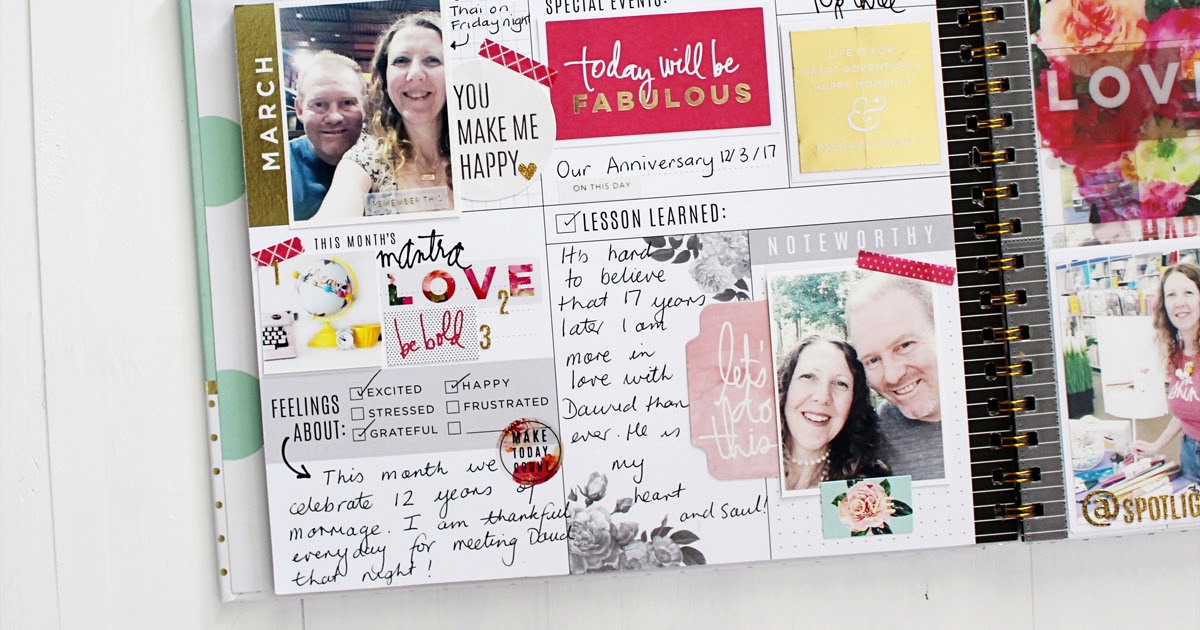 MARCH
Thai on
Friday night
REMEMBER THIS
YOU
MAKE ME
HAPPY
SPECIAL EVENTS:
today will be
FABULOUS
Our Anniversary 12/3/17
ON THIS DAY
LIFE IS FOR
GREAT ADVENTURES
HAPPY MOMENTS
&
THIS MONTH'S
mantra
1
LOVE
2
be bold
3
FEELINGS
ABOUT:
EXCITED
HAPPY
STRESSED
FRUSTRATED
GRATEFUL
MAKE
TODAY
COUNT
This month we
celebrate 12 years of
marriage. I am thankful
everyday for meeting David
that night!
LESSON LEARNED:
It's hard
to believe
that 17 years
later I am
more in
love with
Dawid than
ever. He is
my
heart
and Saul!
NOTEWORTHY
let's
do
this
LOVE
@SPOTLIG